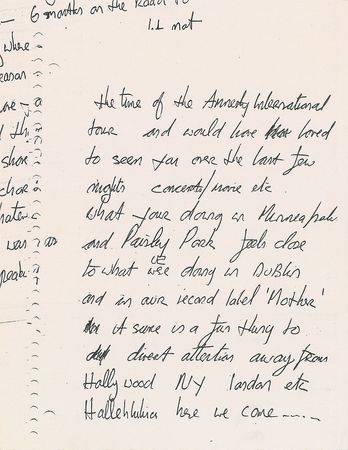 6 months on the Road
the time of the Amnesty International
tour and would have loved
to seen you over the last few
nights concerts/movie etc.
What your doing in Minneapolis
and Paisley Park feels close
to what we doing in DUBLIN
and in our record label 'Mother'
it same is a fun thing to
direct attention away from
Hollywood NY London etc
Hallehluhia here we come.....
y where
was